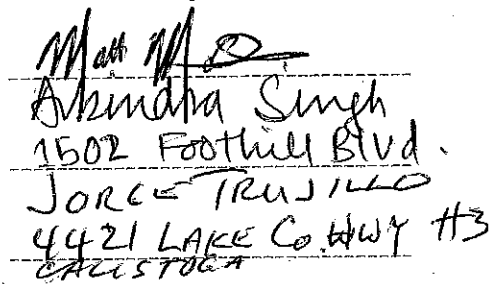 Matt
Singh
1502 Foothill Blvd.
JORGE TRUJILLO
4421 LAKE Co. HWY #3
CALISTOGA